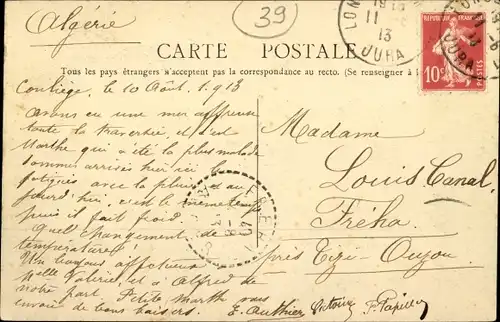 Algérie
39
CARTE POSTALE
Tous les pays étrangers n'acceptent pas la correspondance au recto. (Se renseigner à
LON
11
13
JURA
REPUBLIQUE FRANÇAISE
10c
POSTES
JURA
Conliège, le 10 Août 1913
Avons eu une mer affreuse
toute la traversée, et c'est
Marthe qui a été la plus malade
sommes arrivés hier ici
fatigués avec la pluie et au
jourd'hui, c'est le même temps
puis il fait froid.
Quel changement de
température!
Un baiser affectueux
Valérie, et à Alfred de
notre part. Petite Marthe vous
envoie de bons baisers.
E. Authier Victoire P. Papillon
Madame
Louis Canal,
Fréha,
près Tizi-Ouzou